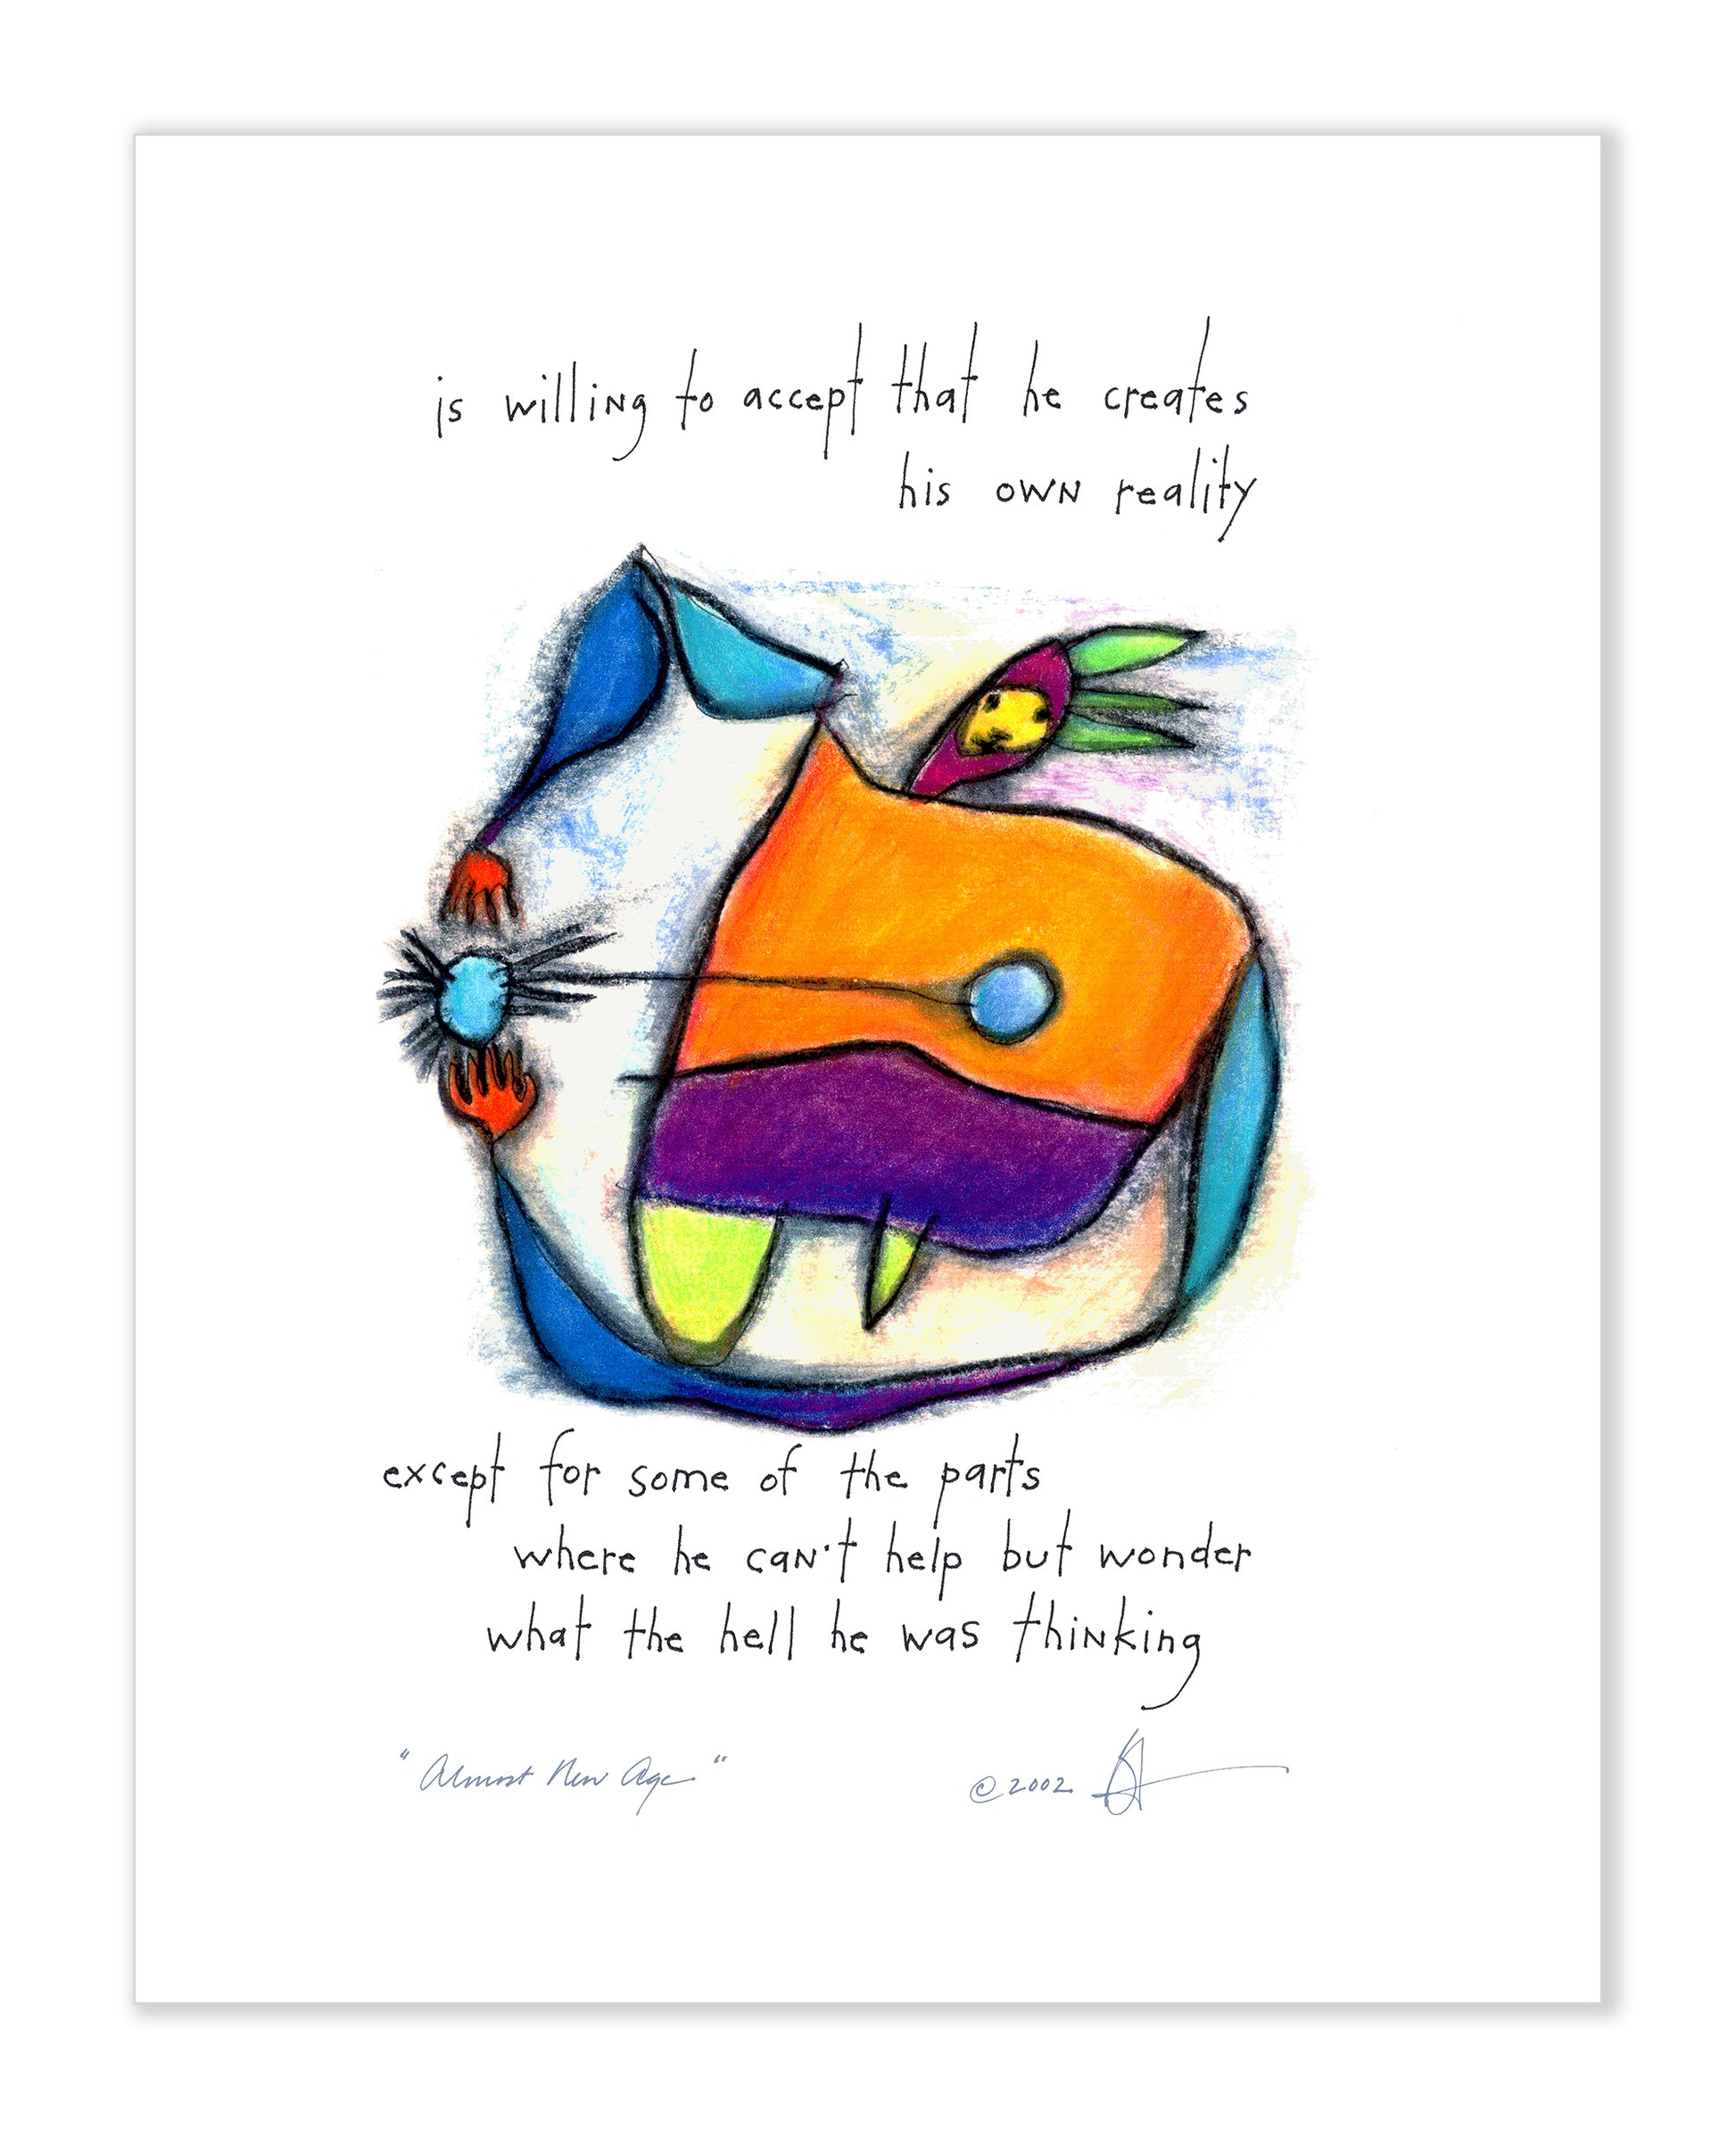 is willing to accept that he creates
his own reality
except for some of the parts
where he can't help but wonder
what the hell he was thinking
"Almost New Age" ©2002